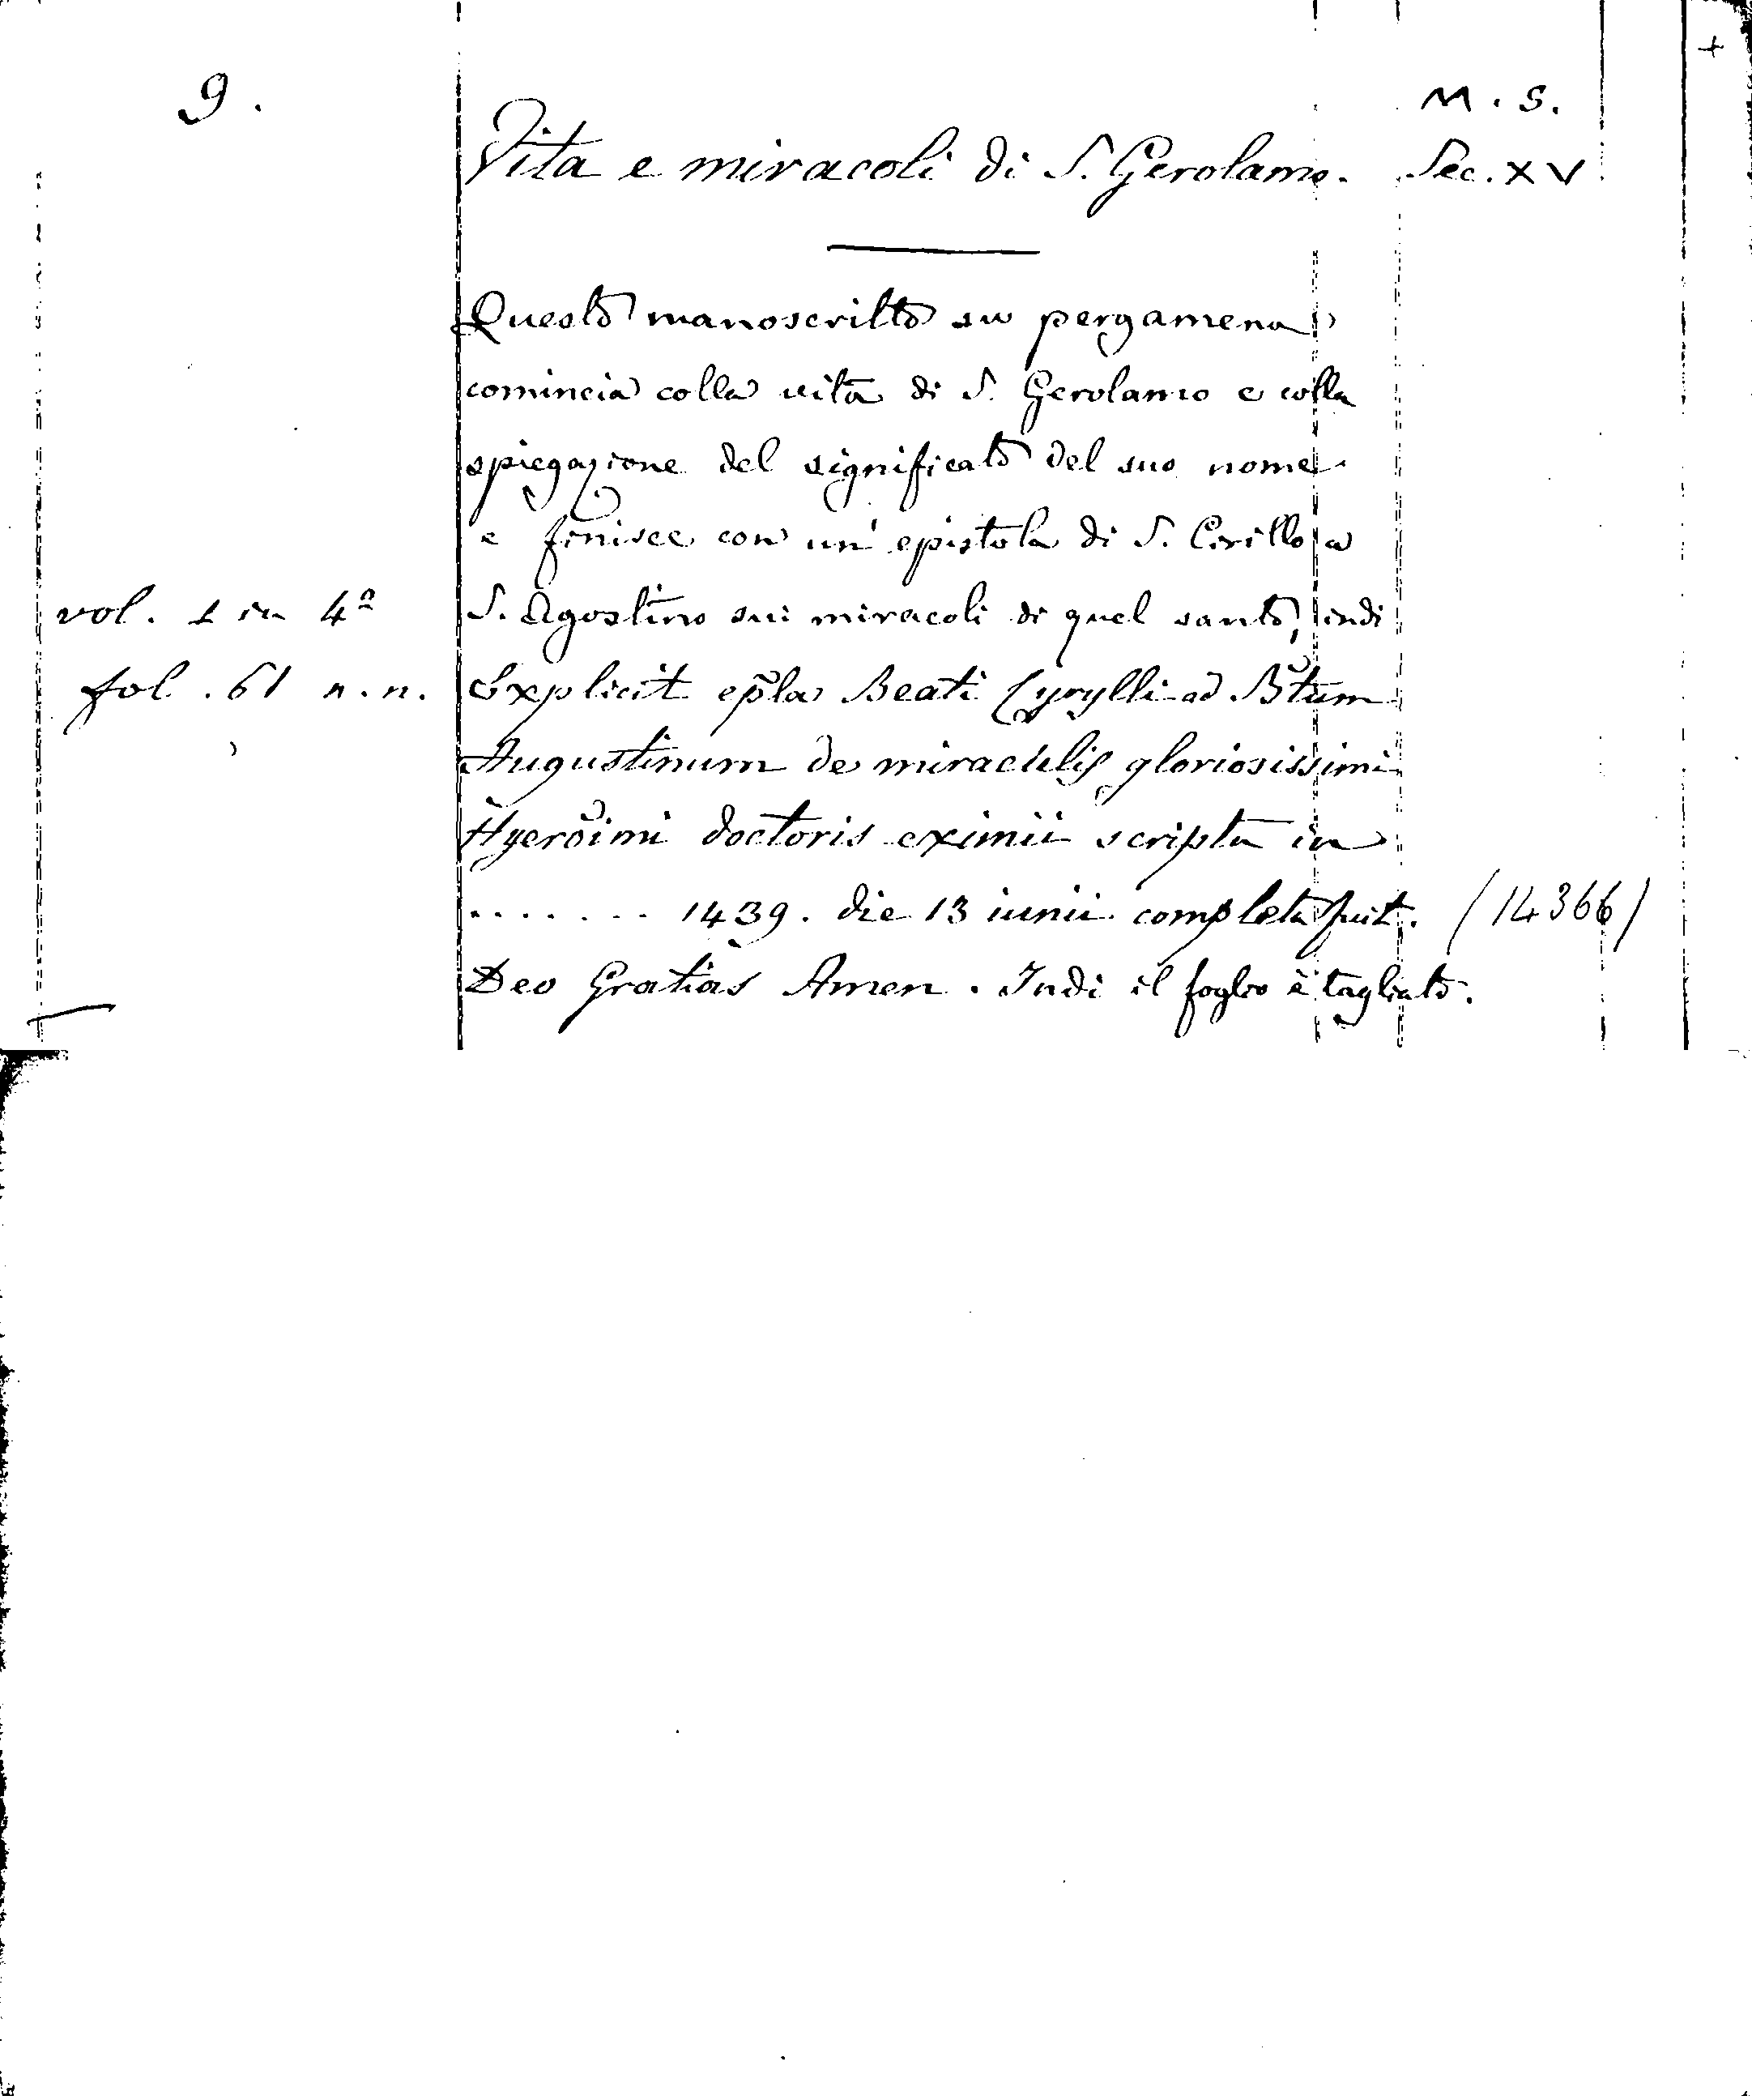 +
9.
M. S.
Vita e miracoli di S. Gerolamo. Sec. XV
Questo manoscritto su pergamena
comincia colla vita di S. Gerolamo e colla
spiegazione del significato del suo nome
e finisce con un' epistola di S. Cirillo a
vol. 1 in 4º S. Agostino sui miracoli di quel santo, indi
fol. 61 n. n. Explicit ep̃la Beati Cyrylli ad B̃tum
Augustinum de miraculis gloriosissimi
Hyerõimi doctoris eximii scripta in
........ 1439. die 13 iunii completa fuit. (14366)
Deo Gratias Amen. Indi il foglio è tagliato.